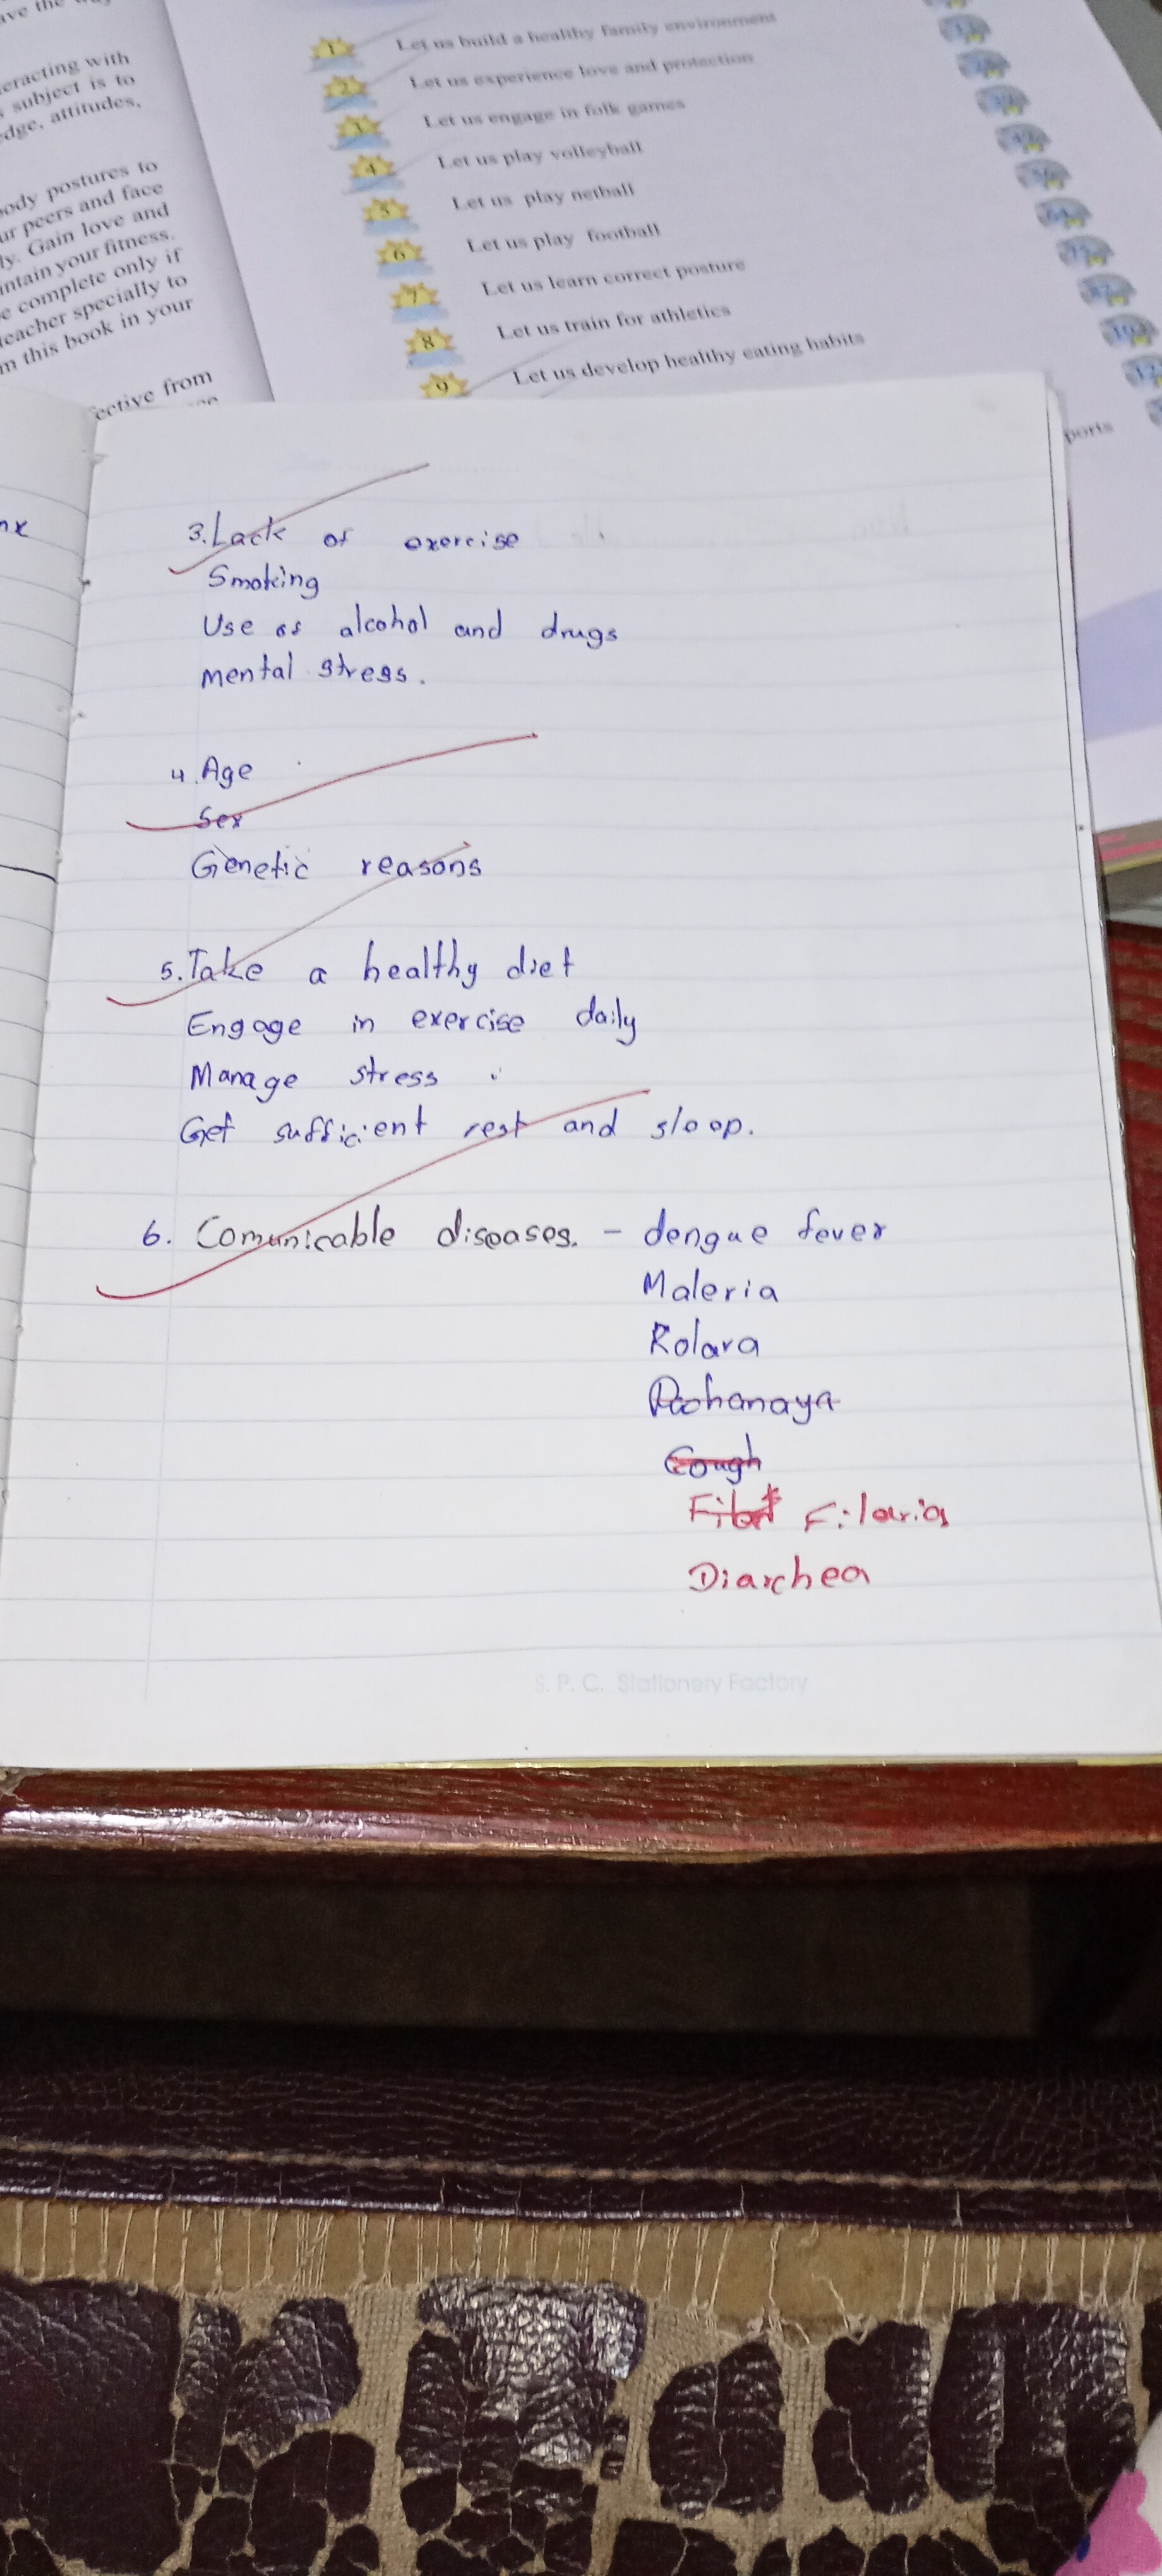 ave the
eracting with
subject is to
edge, attitudes,
ody postures to
ur peers and face
ly. Gain love and
ntain your fitness.
e complete only if
teacher specially to
m this book in your
ective from
1 Let us build a healthy family environment
2 Let us experience love and protection
3 Let us engage in folk games
4 Let us play volleyball
5 Let us play netball
6 Let us play football
7 Let us learn correct posture
8 Let us train for athletics
9 Let us develop healthy eating habits
ports
3. Lack of exercise
Smoking
Use of alcohol and drugs
mental stress.
4. Age
Sex
Genetic reasons
5. Take a healthy diet
Engage in exercise daily
Manage stress
Get sufficient rest and sleep.
6. Comunicable diseases. - dengue fever
Maleria
Kolara
Cough
Filaria
Diarchea
S. P. C. Stationery Factory